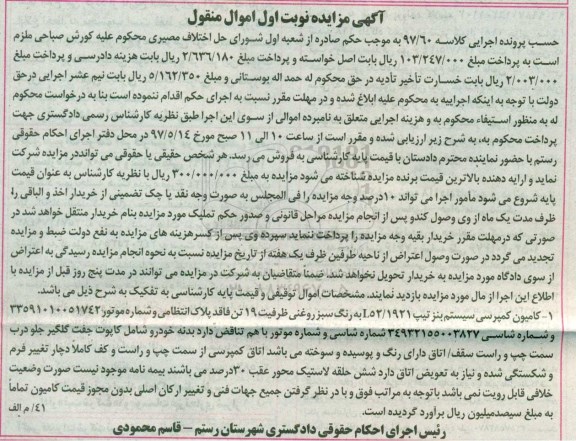 آگهی مزایده نوبت اول اموال منقول
حسب پرونده اجرایی کلاسه ۹۷/۶۰ به موجب حکم صادره از شعبه اول شورای حل اختلاف مصیری محکوم علیه کورش صباحی ملزم
است به پرداخت مبلغ ۱۰۳/۲۴۷/۰۰۰ ریال بابت اصل خواسته و پرداخت مبلغ ۲/۶۳۶/۱۸۰ ریال بابت هزینه دادرسی و پرداخت مبلغ
۲/۰۰۳/۰۰۰ ریال بابت خسارت تأخیر تأدیه در حق محکوم له حمد اله بوستانی و مبلغ ۵/۱۶۲/۳۵۰ ریال بابت نیم عشر اجرایی درحق
دولت با توجه به اینکه اجراییه به محکوم علیه ابلاغ شده و در مهلت مقرر نسبت به اجرای حکم اقدام ننموده است بنا به درخواست محکوم
له به منظور استیفاء محکوم به و هزینه اجرایی متعلق به نامبرده اموالی از سوی این اجرا طبق نظریه کارشناس رسمی دادگستری جهت
پرداخت محکوم به، به شرح زیر ارزیابی شده و مقرر است از ساعت ۱۰ الی ۱۱ صبح مورخ ۹۷/۵/۱۴ در محل دفتر اجرای احکام حقوقی
رستم با حضور نماینده محترم دادستان با قیمت پایه کارشناسی به فروش می رسد. هر شخص حقیقی یا حقوقی می توانددر مزایده شرکت
نماید و ارایه دهنده بالاترین قیمت برنده مزایده شناخته می شود مزایده به مبلغ ۳۰۰/۰۰۰/۰۰۰ ریال با نظریه کارشناس به عنوان قیمت
پایه شروع می شود مأمور اجرا می تواند ۱۰درصد وجه مزایده را فی المجلس به صورت وجه نقد یا چک تضمینی از خریدار اخذ و الباقی را
ظرف مدت یک ماه از وی وصول کندو پس از انجام مزایده مراحل قانونی و صدور حکم تملیک مورد مزایده بنام خریدار منتقل خواهد شد در
صورتی که درمهلت مقرر خریدار بقیه وجه مزایده را پرداخت ننماید سپرده وی پس از کسرهزینه های مزایده به نفع دولت ضبط و مزایده
تجدید می گردد در صورت وصول اعتراض از ناحیه طرفین ظرف یک هفته از تاریخ مزایده نسبت به نحوه انجام مزایده رسیدگی به اعتراض
از سوی دادگاه مورد مزایده به خریدار تحویل نخواهد شد. ضمناً متقاضیان به شرکت در مزایده می توانند در مدت پنج روز قبل از مزایده با
اطلاع این اجرا از مال مورد مزایده بازدید نمایند. مشخصات اموال توقیفی و قیمت پایه کارشناسی به تفکیک به شرح ذیل می باشد.
۱- کامیون کمپرسی سیستم بنز تیپ L۵۲/۱۹۲۱ به رنگ سبز روغنی ظرفیت ۱۹ تن فاقد پلاک انتظامی و شماره موتور ۳۳۵۹۱۰۱۰۰۵۱۷۴۲
و شماره شاسی ۳۴۹۳۲۱۵۵۰۰۳۸۲۷ شماره شاسی و شماره موتور با هم تناقض دارد بدنه خودرو شامل کاپوت جفت گلگیر جلو درب
سمت چپ و راست سقف/ اتاق دارای رنگ و پوسیده و سوخته می باشد اتاق کمپرسی از سمت چپ و راست و کف کاملاً دچار تغییر فرم
و شکستگی شده و نیاز به تعویض اتاق دارد شش حلقه لاستیک محور عقب ۳۰درصد می باشند بیمه نامه موجود نیست صورت وضعیت
خلافی قابل رویت نمی باشد باتوجه به مراتب فوق و با در نظر گرفتن جمیع جهات فنی و تغییر ارکان اصلی بدون مجوز قیمت کامیون تماماً
به مبلغ سیصدمیلیون ریال برآورد گردیده است.
۴۱/ م الف
رئیس اجرای احکام حقوقی دادگستری شهرستان رستم - قاسم محمودی